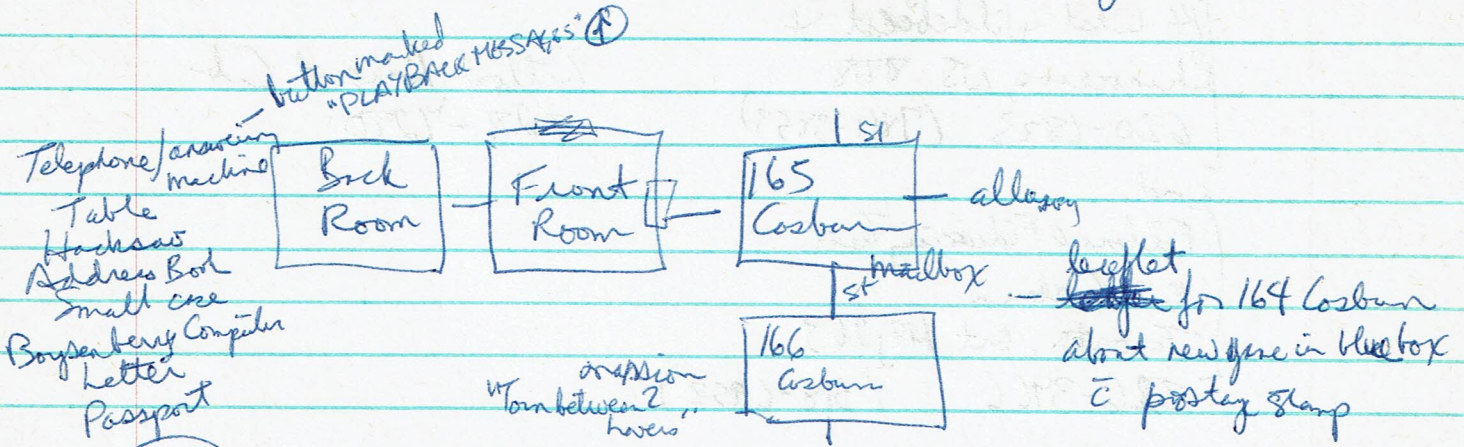 button marked
"PLAYBACK MESSAGES" ↑
Telephone/answering
machine
Table
Hacksaw
Address Book
Small case
Boysenberry Computer
Letter
Passport
Back
Room
Front
Room
1 st
165
Cosburn
st
mailbox
leaflet
for 164 Cosburn
about new game in blue box
c̄ postag stamp
166
Cosburn
"Torn between 2
Lovers"